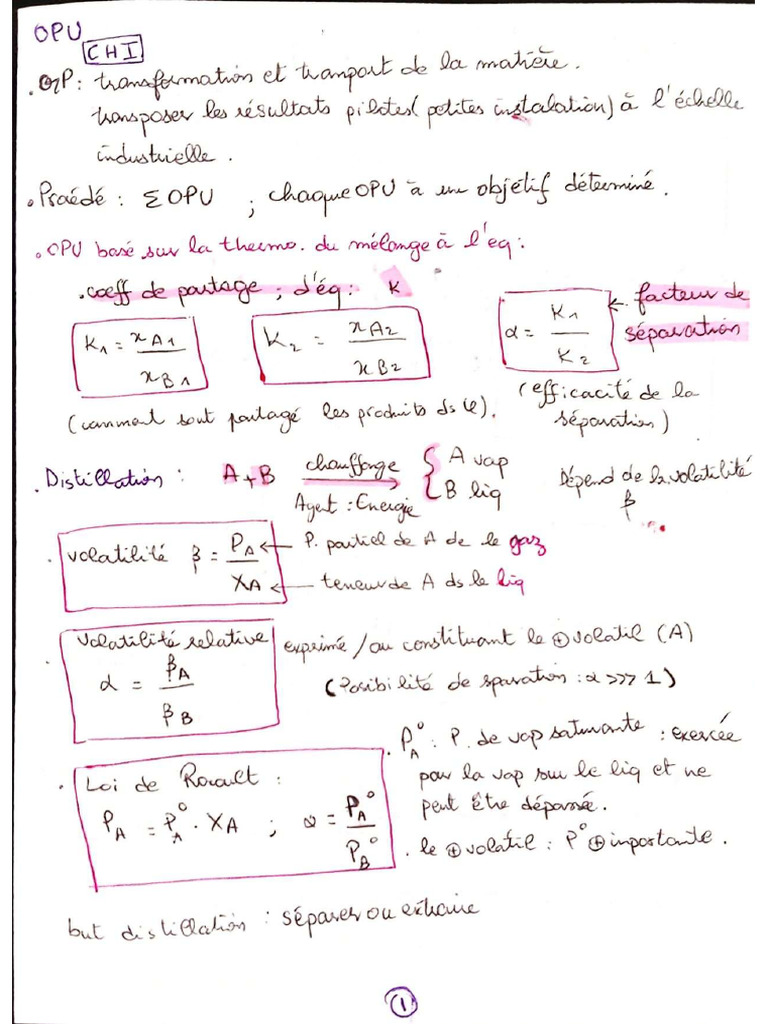 OPU
CHI
. OP : transformation et tranport de la matière.
transposer les résultats pilotes (petites instalation) à l'échelle
industrielle.
. Procédé : ΣOPU ; chaque OPU à un objétif déterminé.
. OPU basé sur la thermo. du mélange à l'eq :
. coeff de partage ; d'éq : K
K₁ = xA1 / xB1
K₂ = xA2 / xB2
α = K₁ / K₂ ← facteur de séparation
(comment sont partagé les produits ds φ).
(efficacité de la séparation)
. Distillation : A+B chauffage → { A vap
B liq
Agent : Energie
Dépend de la volatilité
β
. volatilité β = PA / XA
← P. partiel de A de le gaz
← teneur de A ds le liq
. Volatilité relative
α = βA / βB
exprimé /au constituant le ⊕ volatil (A)
(Posibilité de sparation : α >>> 1)
. Loi de Roault :
PA = P°A . XA ; α = PA° / PB°
. P°A : P. de vap saturante : exercée
par la vap sur le liq et ne
peut être dépassée.
. le ⊕ volatil : P° ⊕ importante.
but distillation : séparer ou extraire
1